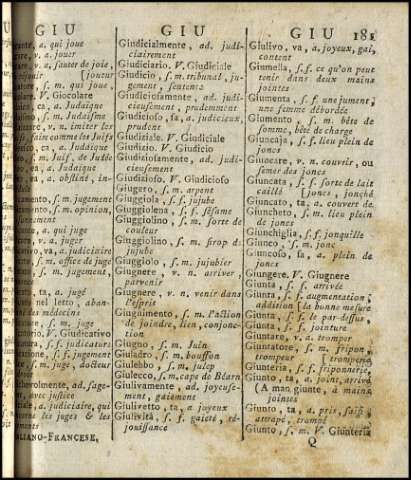 GIU
GIU
GIU 181
, a, qui joue
, v. a. jouer
, v. a. sauter de joie,
réjouir [joueur
, s. m. qui joue,
V. Giocolare
, ca, a. Judaïque
, s. m. Judaïsme
, v. n. imiter les
faire comme les Juifs
, ca, a. Judaïque
, s. m. Juif, de Judée
, va, a. Judaïque
, va, a. obstiné, in-
, s. m. jugement
, s. m. opinion,
jugement
, a. qui juge
, v. a. juger
, va, a. judiciaire
, s. m. office de juge
, s. m. jugement,
, ta, a. jugé
nel letto, aban-
des médecins
, s. m. juge
V. Giudicativo
, s. f. judicature
, s. f. jugement
, s. m. juge, docteur
, ad. sage-
, avec justice
, a. judiciaire, qui
les juges & les
jugements
ITALIANO-FRANCESE,
Giudicialmente, ad. judi-
ciairement
Giudiciario. V. Giudiciale
Giudicio, s. m. tribunal, ju-
gement, sentence
Giudiciosamente, ad. judi-
cieusement, prudemment
Giudicioso, sa, a. judicieux,
prudent
Giudiziale. V. Giudiciale
Giudizio. V. Giudicio
Giudiziosamente, ad. judi-
cieusement
Giudizioso. V. Giudicioso
Giugero, s. m. arpent
Giuggiola, s. f. jujube
Giuggiolena, s. f. sésame
Giuggiolino, s. m. sorte de
couleur
Giuggiolino, s. m. sirop de
jujube
Giuggiolo, s. m. jujubier
Giugnere, v. n. arriver,
parvenir
Giugnere, v. n. venir dans
l'esprit
Giugnimento, s. m. l'action
de joindre, lien, conjonc-
tion
Giugno, s. m. Juin
Giuladro, s. m. bouffon
Giulebbo, s. m. julep
Giulecco, s. m. cape de Béarn
Giulivamente, ad. joyeuse-
ment, gaiement
Giulivetto, ta, a. joyeux
Giulività, s. f. gaieté, ré-
jouissance
Giulivo, va, a. joyeux, gai,
content
Giumella, s. f. ce qu'on peut
tenir dans deux mains
jointes
Giumenta, s. f. une jument,
une femme débordée
Giumento, s. m. bête de
somme, bête de charge
Giuncaja, s. f. lieu plein de
joncs
Giuncare, v. n. couvrir, ou
semer des joncs
Giuncata, s. f. sorte de lait
caillé [joncs, jonché
Giuncato, ta, a. couvert de
Giuncheto, s. m. lieu plein
de joncs
Giunchiglia, s. f. jonquille
Giunco, s. m. jonc
Giuncoso, sa, a. plein de
joncs
Giungere. V. Giugnere
Giunta, s. f. arrivée
Giunta, s. f. augmentation,
addition [la bonne mesure
Giunta, s. f. le par-dessus,
Giunta, s. f. jointure
Giuntare, v. a. tromper
Giuntatore, s. m. fripon,
trompeur [tromperie
Giunteria, s. f. friponnerie,
Giunto, ta, a. joint, arrivé
(A man giunte, à mains
jointes
Giunto, ta, a. pris, saisi,
attrapé, trompé
Giunto, s. m. V. Giunteria
Q